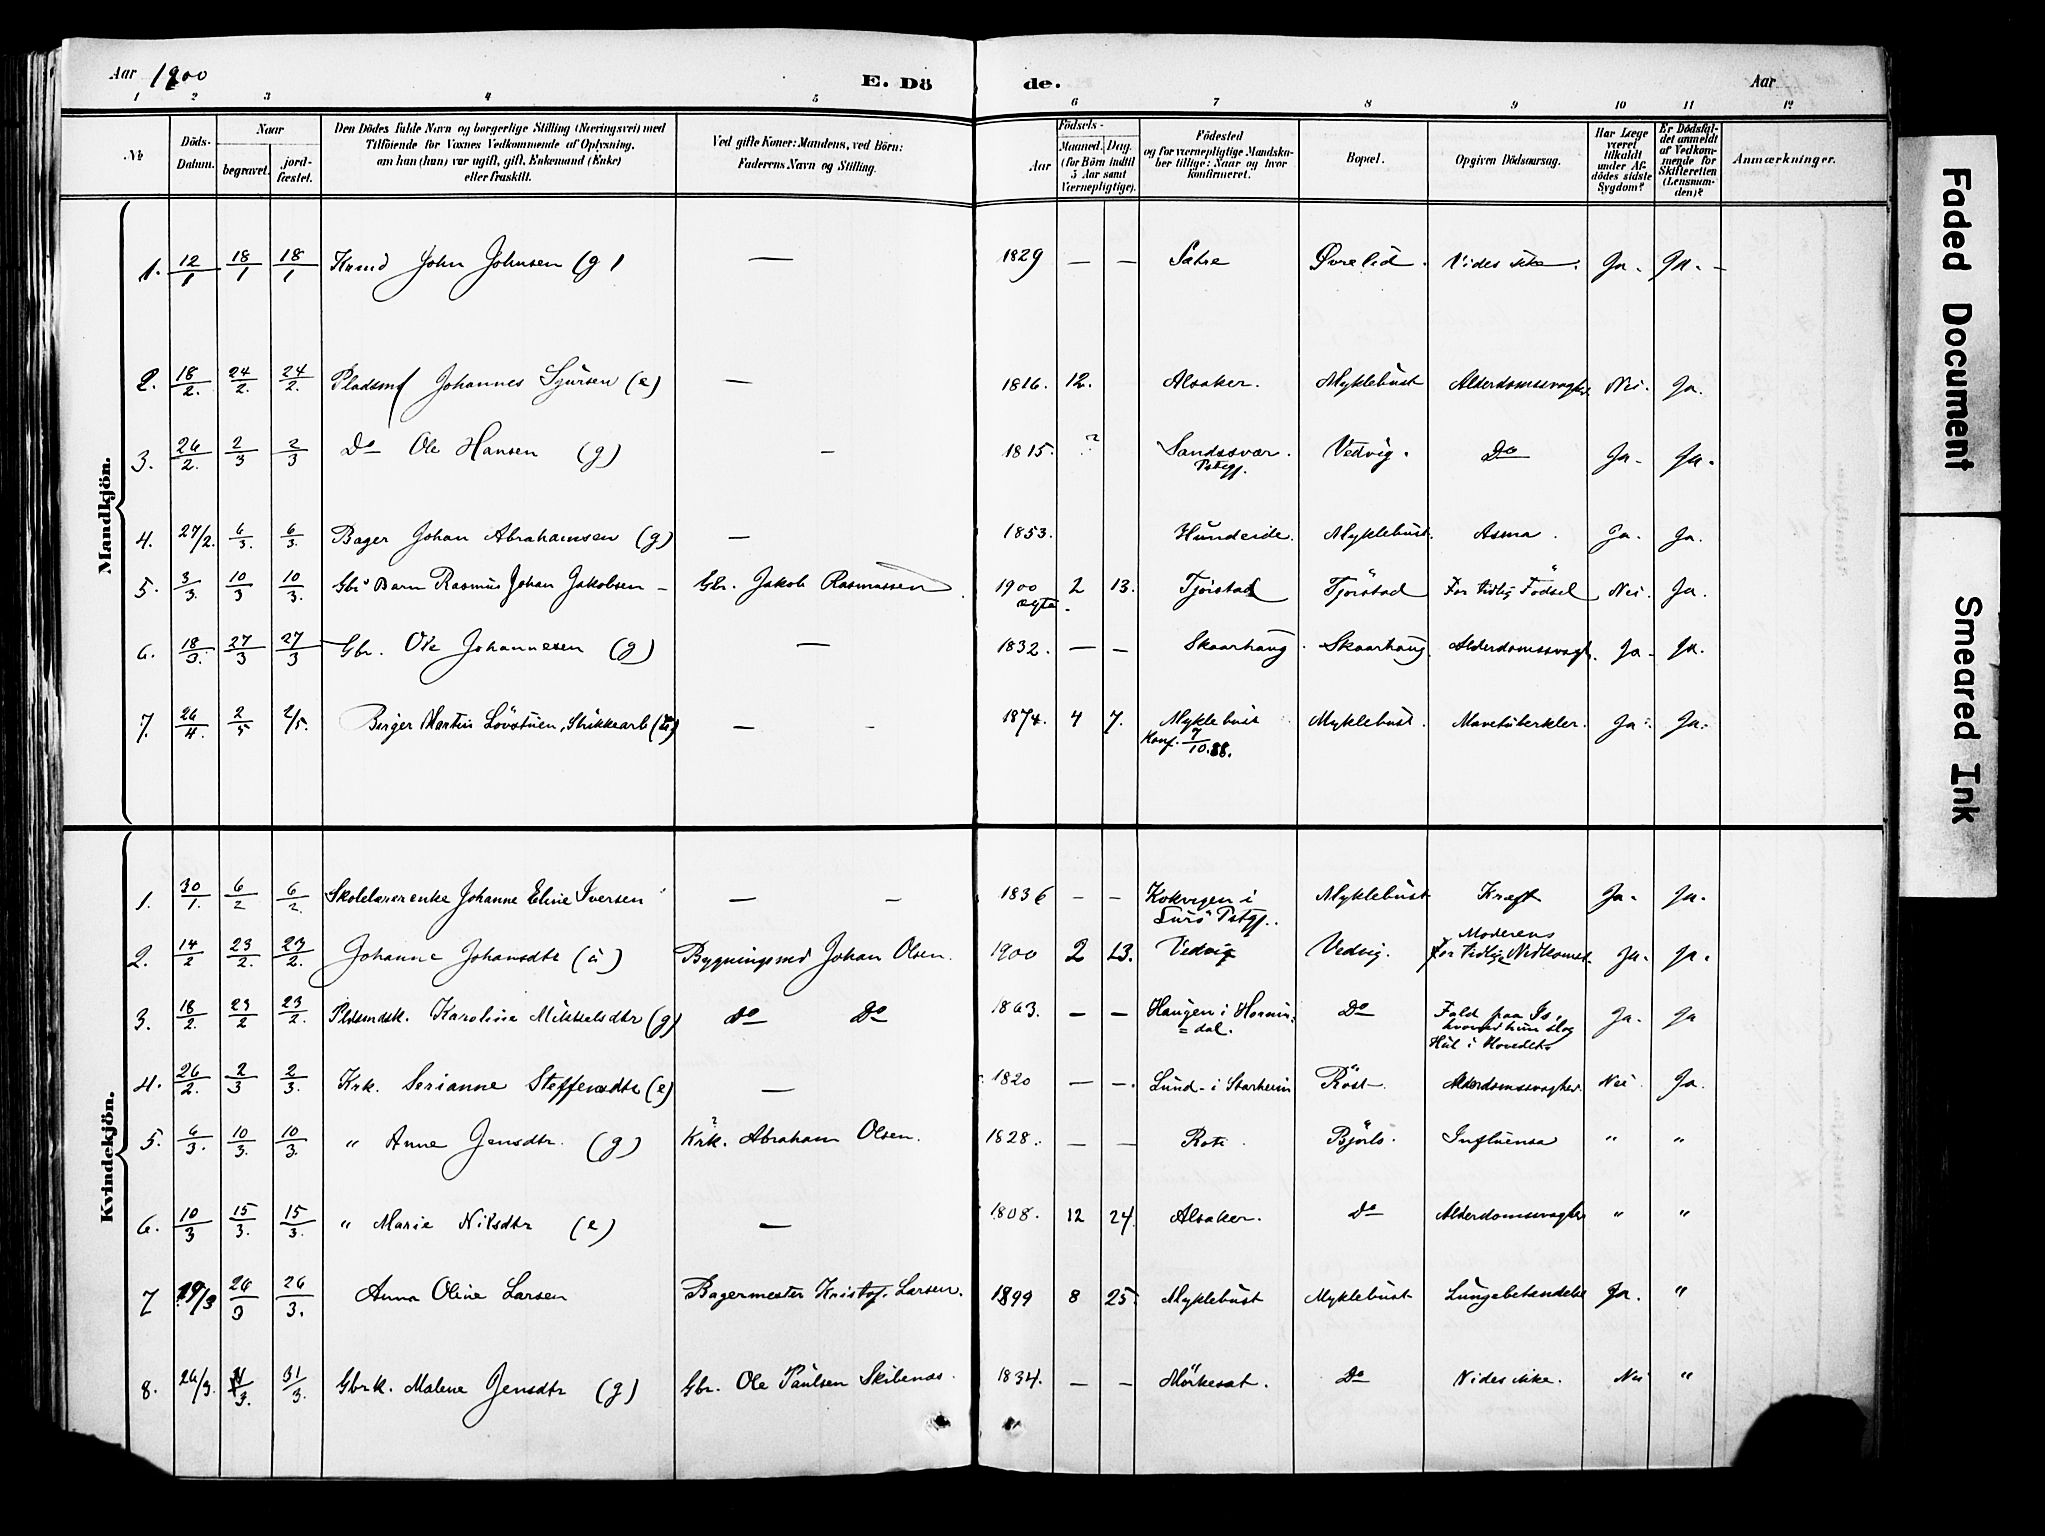 Aar 1900 E. Dö de. Aar
1 2 3 4 5 6 7 8 9 10 11 12
No Döds-Datum. Naar begravet. jordfæstet. Den Dödes fulde Navn og borgerlige Stilling (Næringsvei) med Tilföiende for Voxnes Vedkommende af Oplysning, om han (hun) var ugift, gift, Enkemand (Enke) eller fraskilt. Ved gifte Koner: Mandens, ved Börn: Faderens Navn og Stilling. Födsels- Aar Maaned. Dag. (for Börn indtil 5 Aar samt Værnepligtige). Födested og for værnepligtige Mandskaber tillige: Naar og hvor konfirmeret. Bopæl. Opgiven Dödsaarsag. Har Læge været tilkaldt under Afdödes sidste Sygdom? Er Dödsfaldet anmeldt af Vedkommende for Skifteretten (Lensmanden)? Anmærkninger.
Mandkjön.
1. 12/1 18/1 18/1 John Johnsen (g) — 1829 — — Øvrelid. Vides ikke. Ja. Ja. —
2. 18/2. 24/2. 24/2. Johannes Sjursen (e) — 1816. 12. Alsaker. Myklebust Alderdomssvaghed Nei. Ja.
3. 26/2. 2/3 2/3 Do Ole Hansen (g) — 1815. ? Sandssvær. Pstgj. Vedvig. Do Ja. Ja.
4. 27/2. 6/3. 6/3. Bager Johan Abrahamsen (g) — 1853. Hundeide. Myklebust. Asma. Ja. Ja.
5. 3/3. 10/3 10/3. Gbr. Barn Rasmus Johan Jakobsen — Gbr. Jakob Rasmussen. 1900 ægte. 2 13. Tjörstad Tjörstad For tidlig Födsel Nei. Ja.
6. 18/3. 27/3 27/3 Gbr. Ole Johannesen (g) — 1832. — — Skaarhaug. Skaarhaug. Alderdomssvagh. Ja. Ja.
7. 26/4. 2/5 2/5. Birger Martin Lövstuen, Stikkearb (u) — 1874. 4 7. Myklebust Konf. 7/10.88. Myklebust. Mavetuberkler. Ja. Ja.
Kvindekjön.
1. 30/1. 6/2 6/2. Skolelærerenke Johanne Eline Iversen — 1836 — — Kokvigen i Lurö Pstgj. Myklebust Kræft Ja. Ja.
2. 14/2 23/2. 23/2. Johanne Johansdtr (u) Bygningsmd Johan Olsen. 1900 2 13. Vedvig Vedvig. Moderens for tidlige Nedkomst. Ja. Ja.
3. 18/2. 23/2 23/2. Pldsmdsk. Karoline Mikkelsdtr (g) Do Do 1863. — — Haugen i Hornin=dal. Do Fald paa Is, hvorved hun slog Hul i Hovedet. Ja. Ja
4. 26/2. 2/3 2/3. Krk. Serianne Steffensdtr (e) — 1820 — — Lund i Starheim Röst. Alderdomssvaghed Nei. Ja.
5. 6/3. 10/3. 10/3. " Anne Jensdtr. (g) Krk. Abraham Olsen. 1828. — — Rote. Björlo. Influensa " "
6. 10/3 15/3. 15/3. " Marie Nilsdtr (e) — 1808. 12 24 Alsaker. Do Alderdomssvaghed " "
7 19/3 26/3 26/3. Anna Oline Larsen Bagermester Kristof. Larsen. 1899 8 25. Myklebust Myklebust Lungebetendelse Ja. "
8. 26/3. 31/3. 31/3. Gbrk. Malene Jensdtr (g) Gbr. Ole Paulsen Skibenæs. 1834. — — Mörkesat. Do Vides ikke. Nei "
Faded Document
Smeared Ink